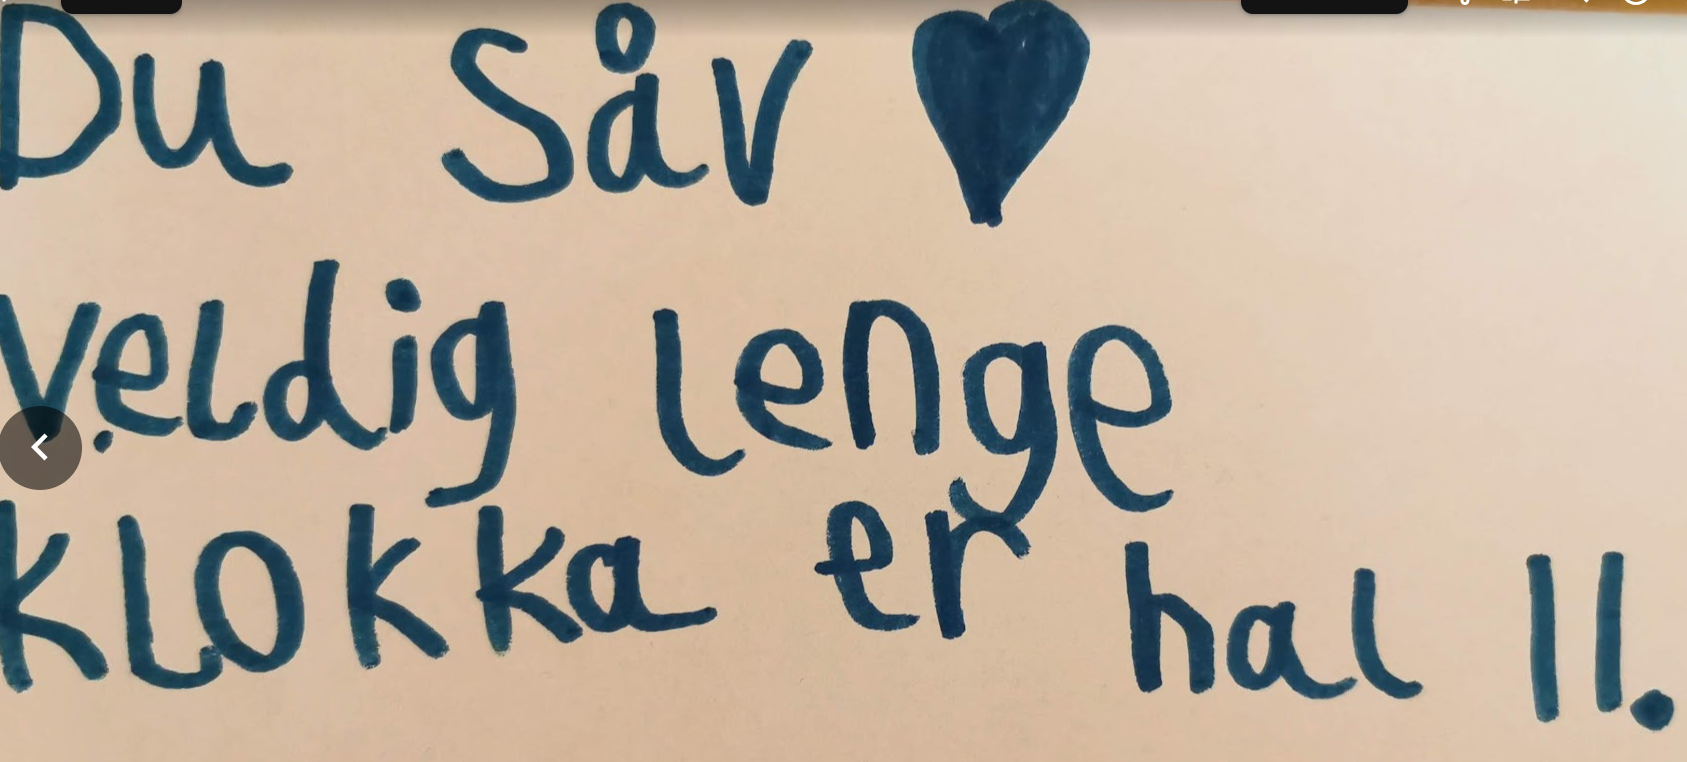 Du Såv
veldig lenge
klokka er hal 11.